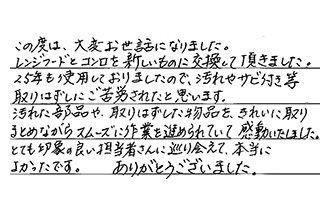 この度は、大変お世話になりました。
レンジフードとコンロを新しいものに交換して頂きました。
25年も使用しておりましたので、汚れやサビ付き等
取りはずしにご苦労されたと思います。
汚れた部品や、取りはずした物品を、きれいに取り
まとめながらスムーズに作業を進められていて感動いたしました。
とても印象の良い担当者さんに巡り会えて、本当に
よかったです。 ありがとうございました。